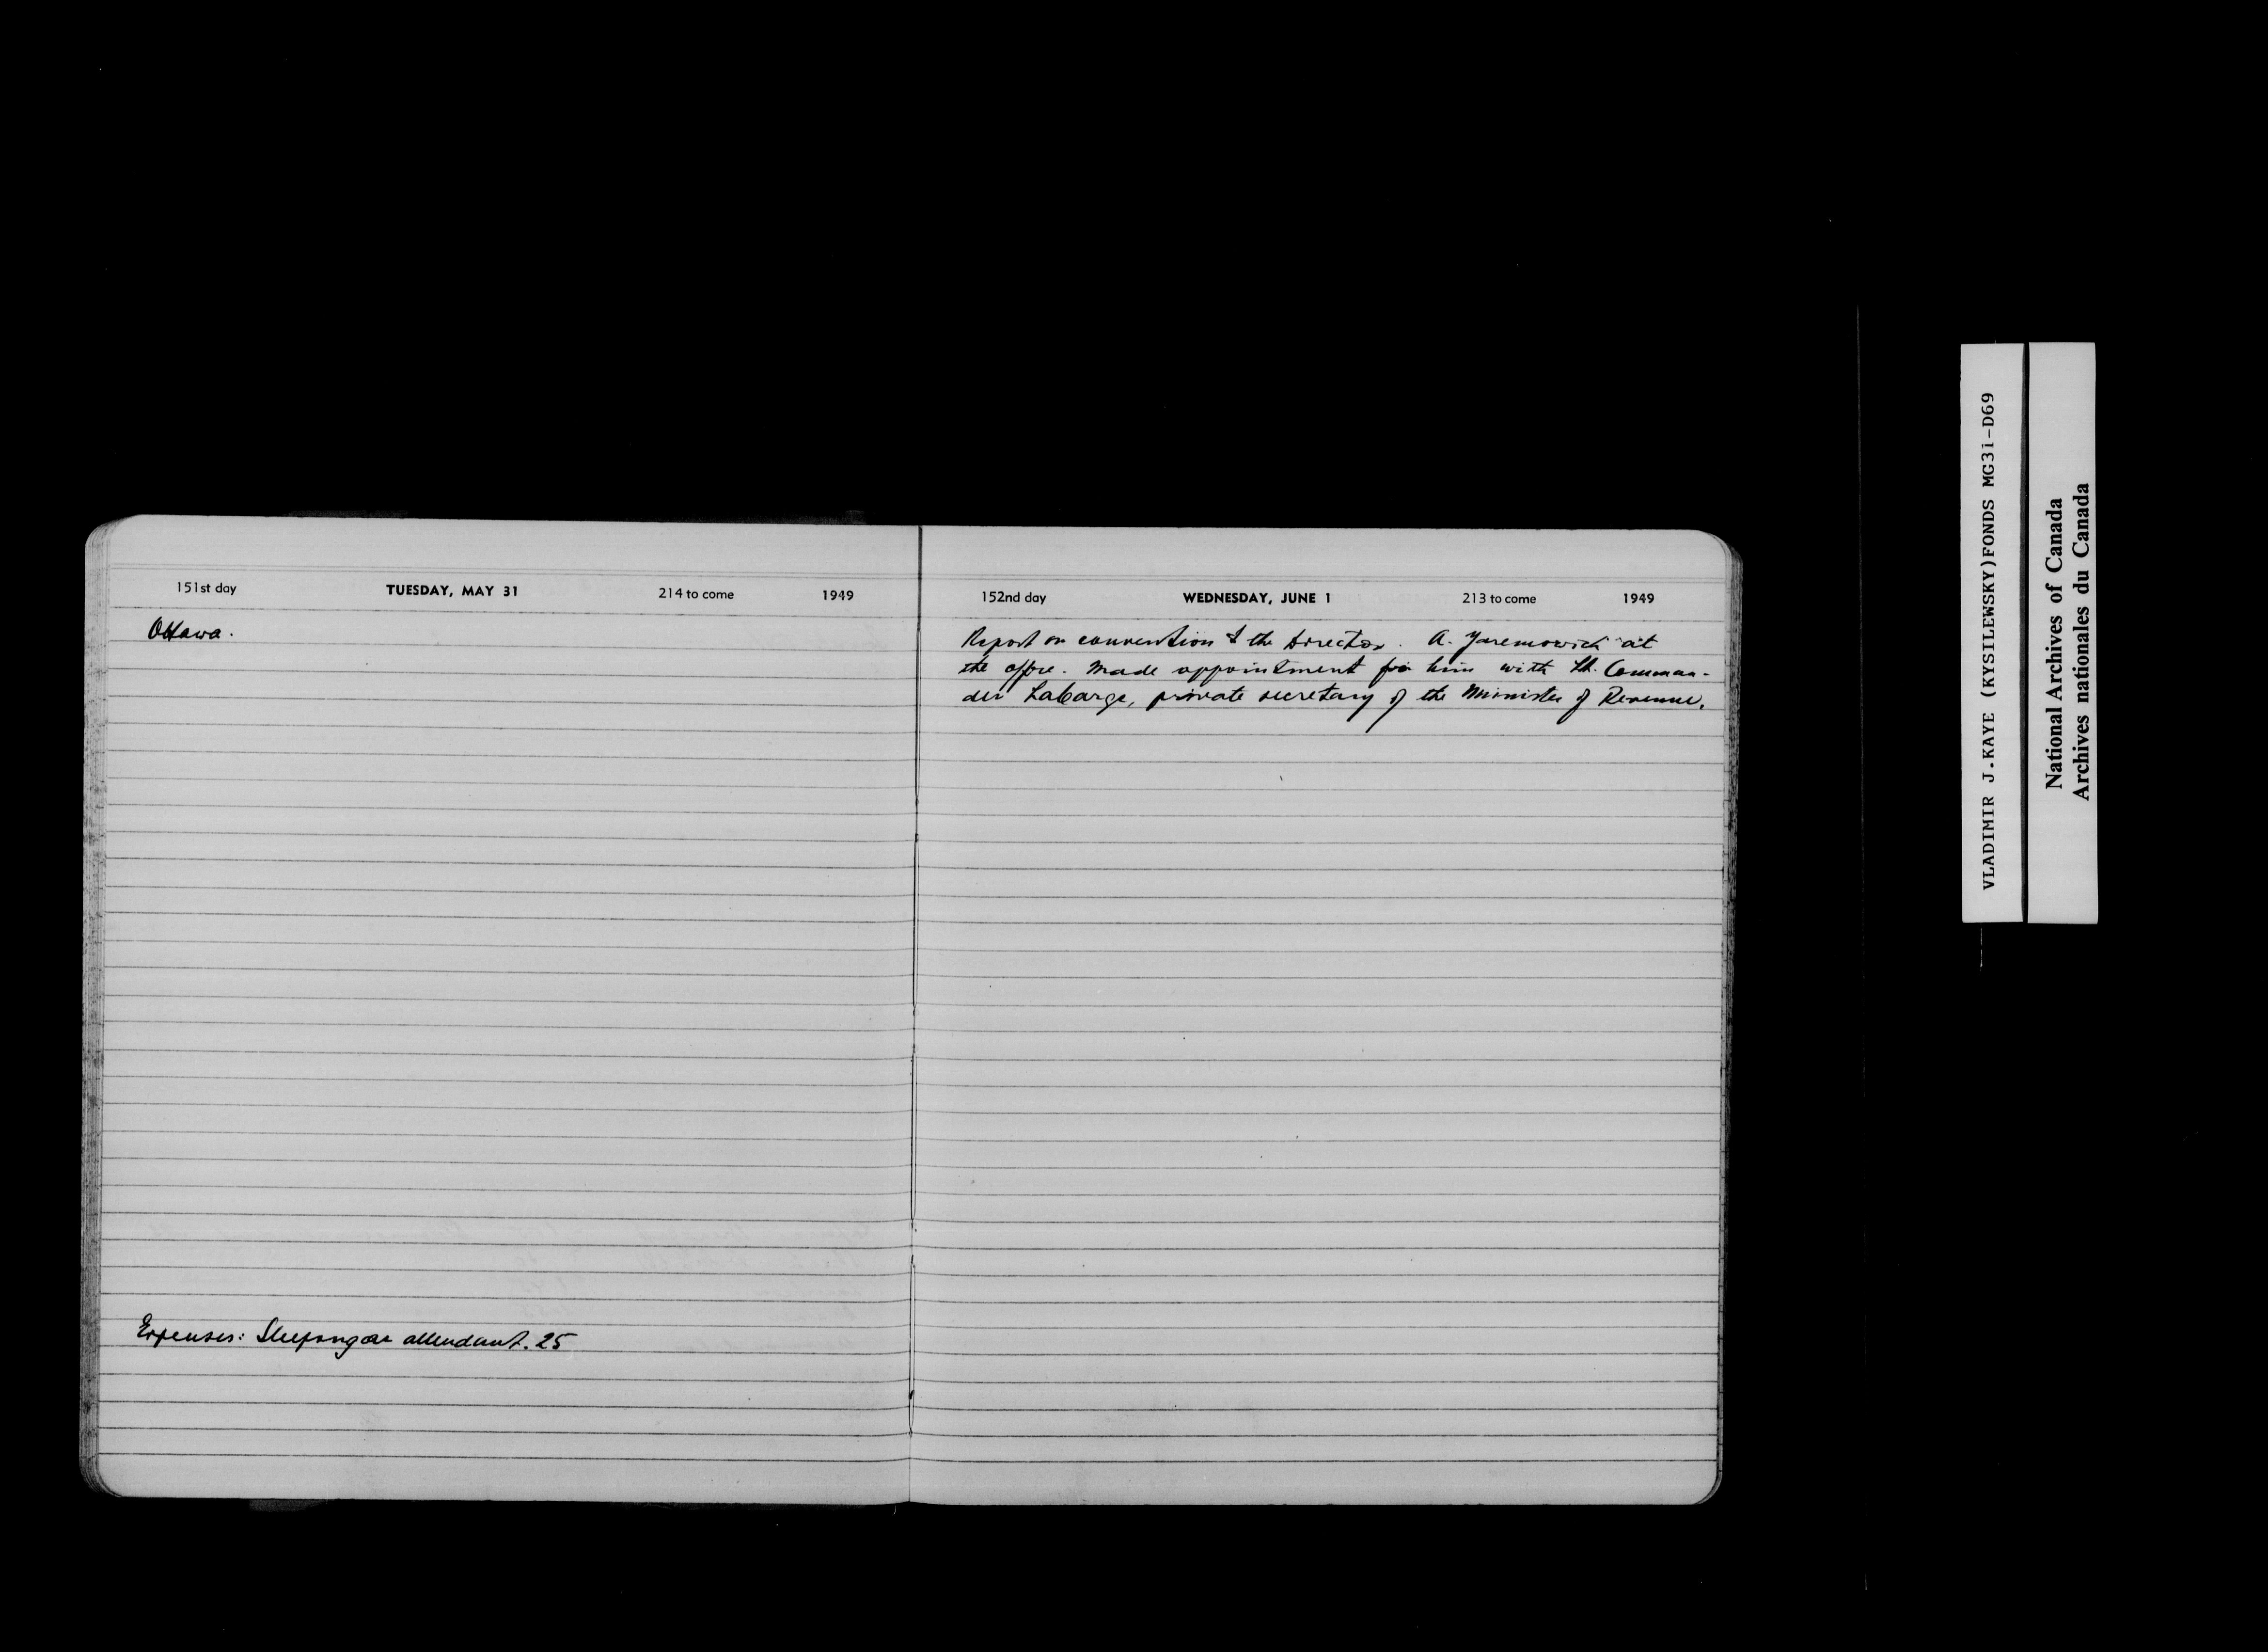 151st day TUESDAY, MAY 31 214 to come 1949
Ottawa.
Expenses: Sleepingcar attendant .25
152nd day WEDNESDAY, JUNE 1 213 to come 1949
Report on convention to the Director. A. Yaremowich at
the office. Made appointment for him with Lt. Comman-
der Labarge, private secretary of the Minister of Revenue.
VLADIMIR J.KAYE (KYSILEWSKY)FONDS MG31-D69
National Archives of Canada
Archives nationales du Canada